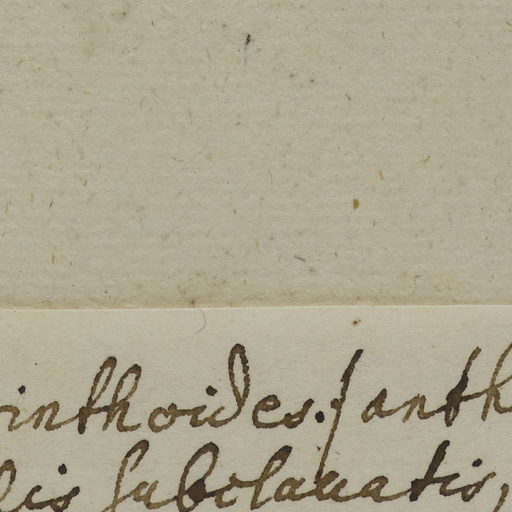 rinthoides. / anth
lis subclauatis,